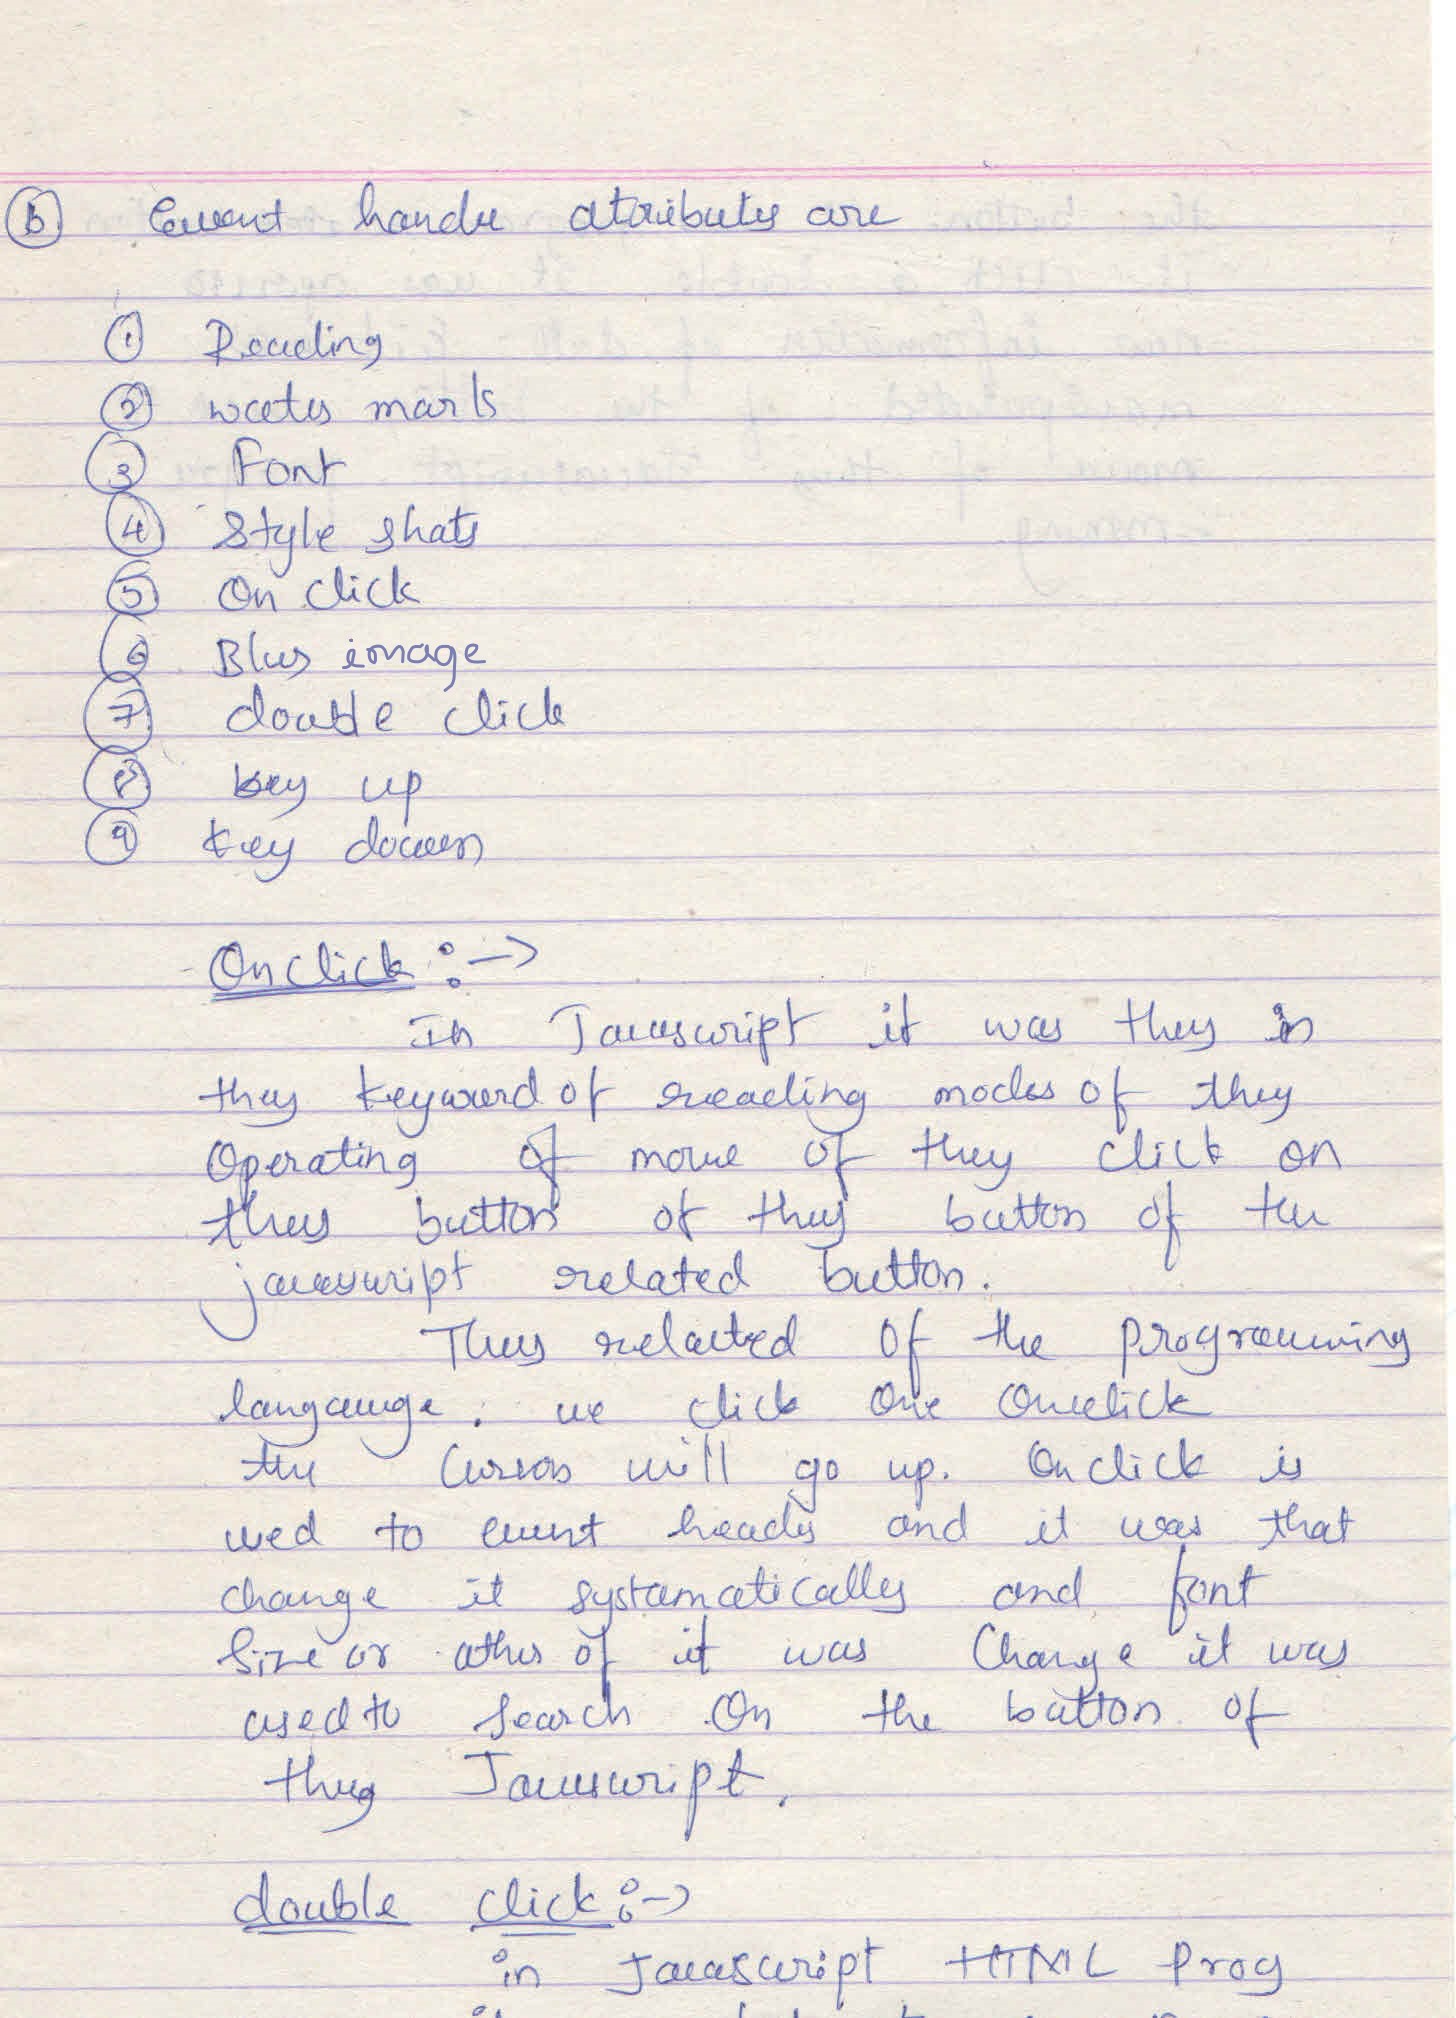 (b) Event handle atributes are
(1) Reading
(2) wates marks
(3) Font
(4) Style shats
(5) On click
(6) Blus image
(7) double click
(8) key up
(9) key down
Onclick :->
In Javascript it was they in
they keyword of reading modes of they
Operating of move of they click on
they button of they button of the
javascript related button.
They related of the programming
langauge. we click One Oneclick
the Cursos will go up. Onclick is
used to event heads and it was that
change it systamatically and font
Size or other of it was Change it was
used to search On the button of
they Javascript.
double click :->
in Javascript HTML Prog